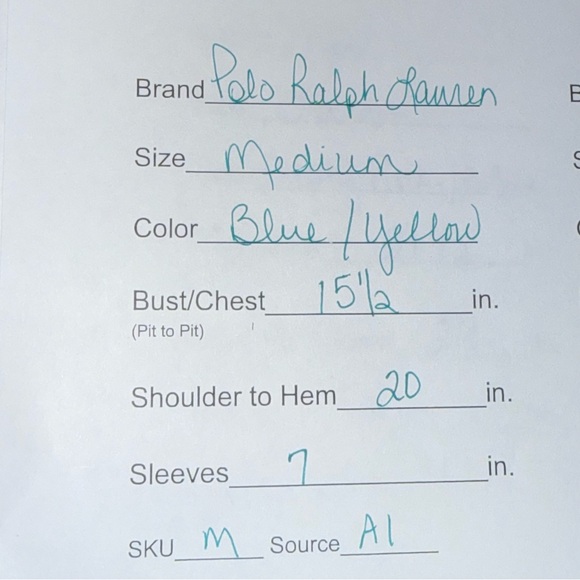 Brand Polo Ralph Lauren
Size Medium
Color Blue / Yellow
Bust/Chest 15 1/2 in.
(Pit to Pit)
Shoulder to Hem 20 in.
Sleeves 7 in.
SKU M Source A1